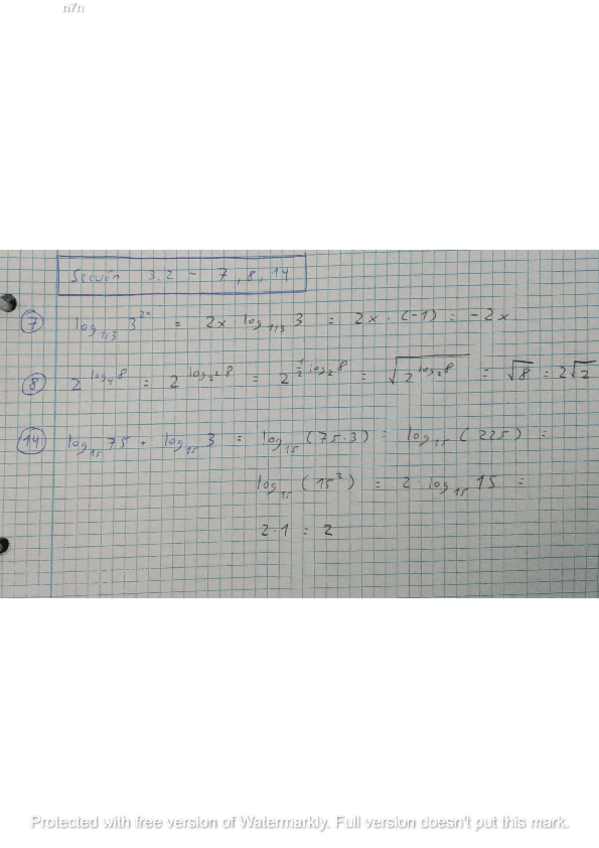 n7n
Sección 3.2 - 7, 8, 14
7 log₁/₃ 3²ˣ = 2x log₁/₃ 3 = 2x · (-1) = -2x
8 2^(log₄ 8) = 2^(log₂² 8) = 2^(1/2 log₂ 8) = √(2^(log₂ 8)) = √8 = 2√2
14 log₁₅ 75 + log₁₅ 3 = log₁₅ (75·3) = log₁₅ (225) =
log₁₅ (15²) = 2 · log₁₅ 15 =
2·1 = 2
Protected with free version of Watermarkly. Full version doesn't put this mark.